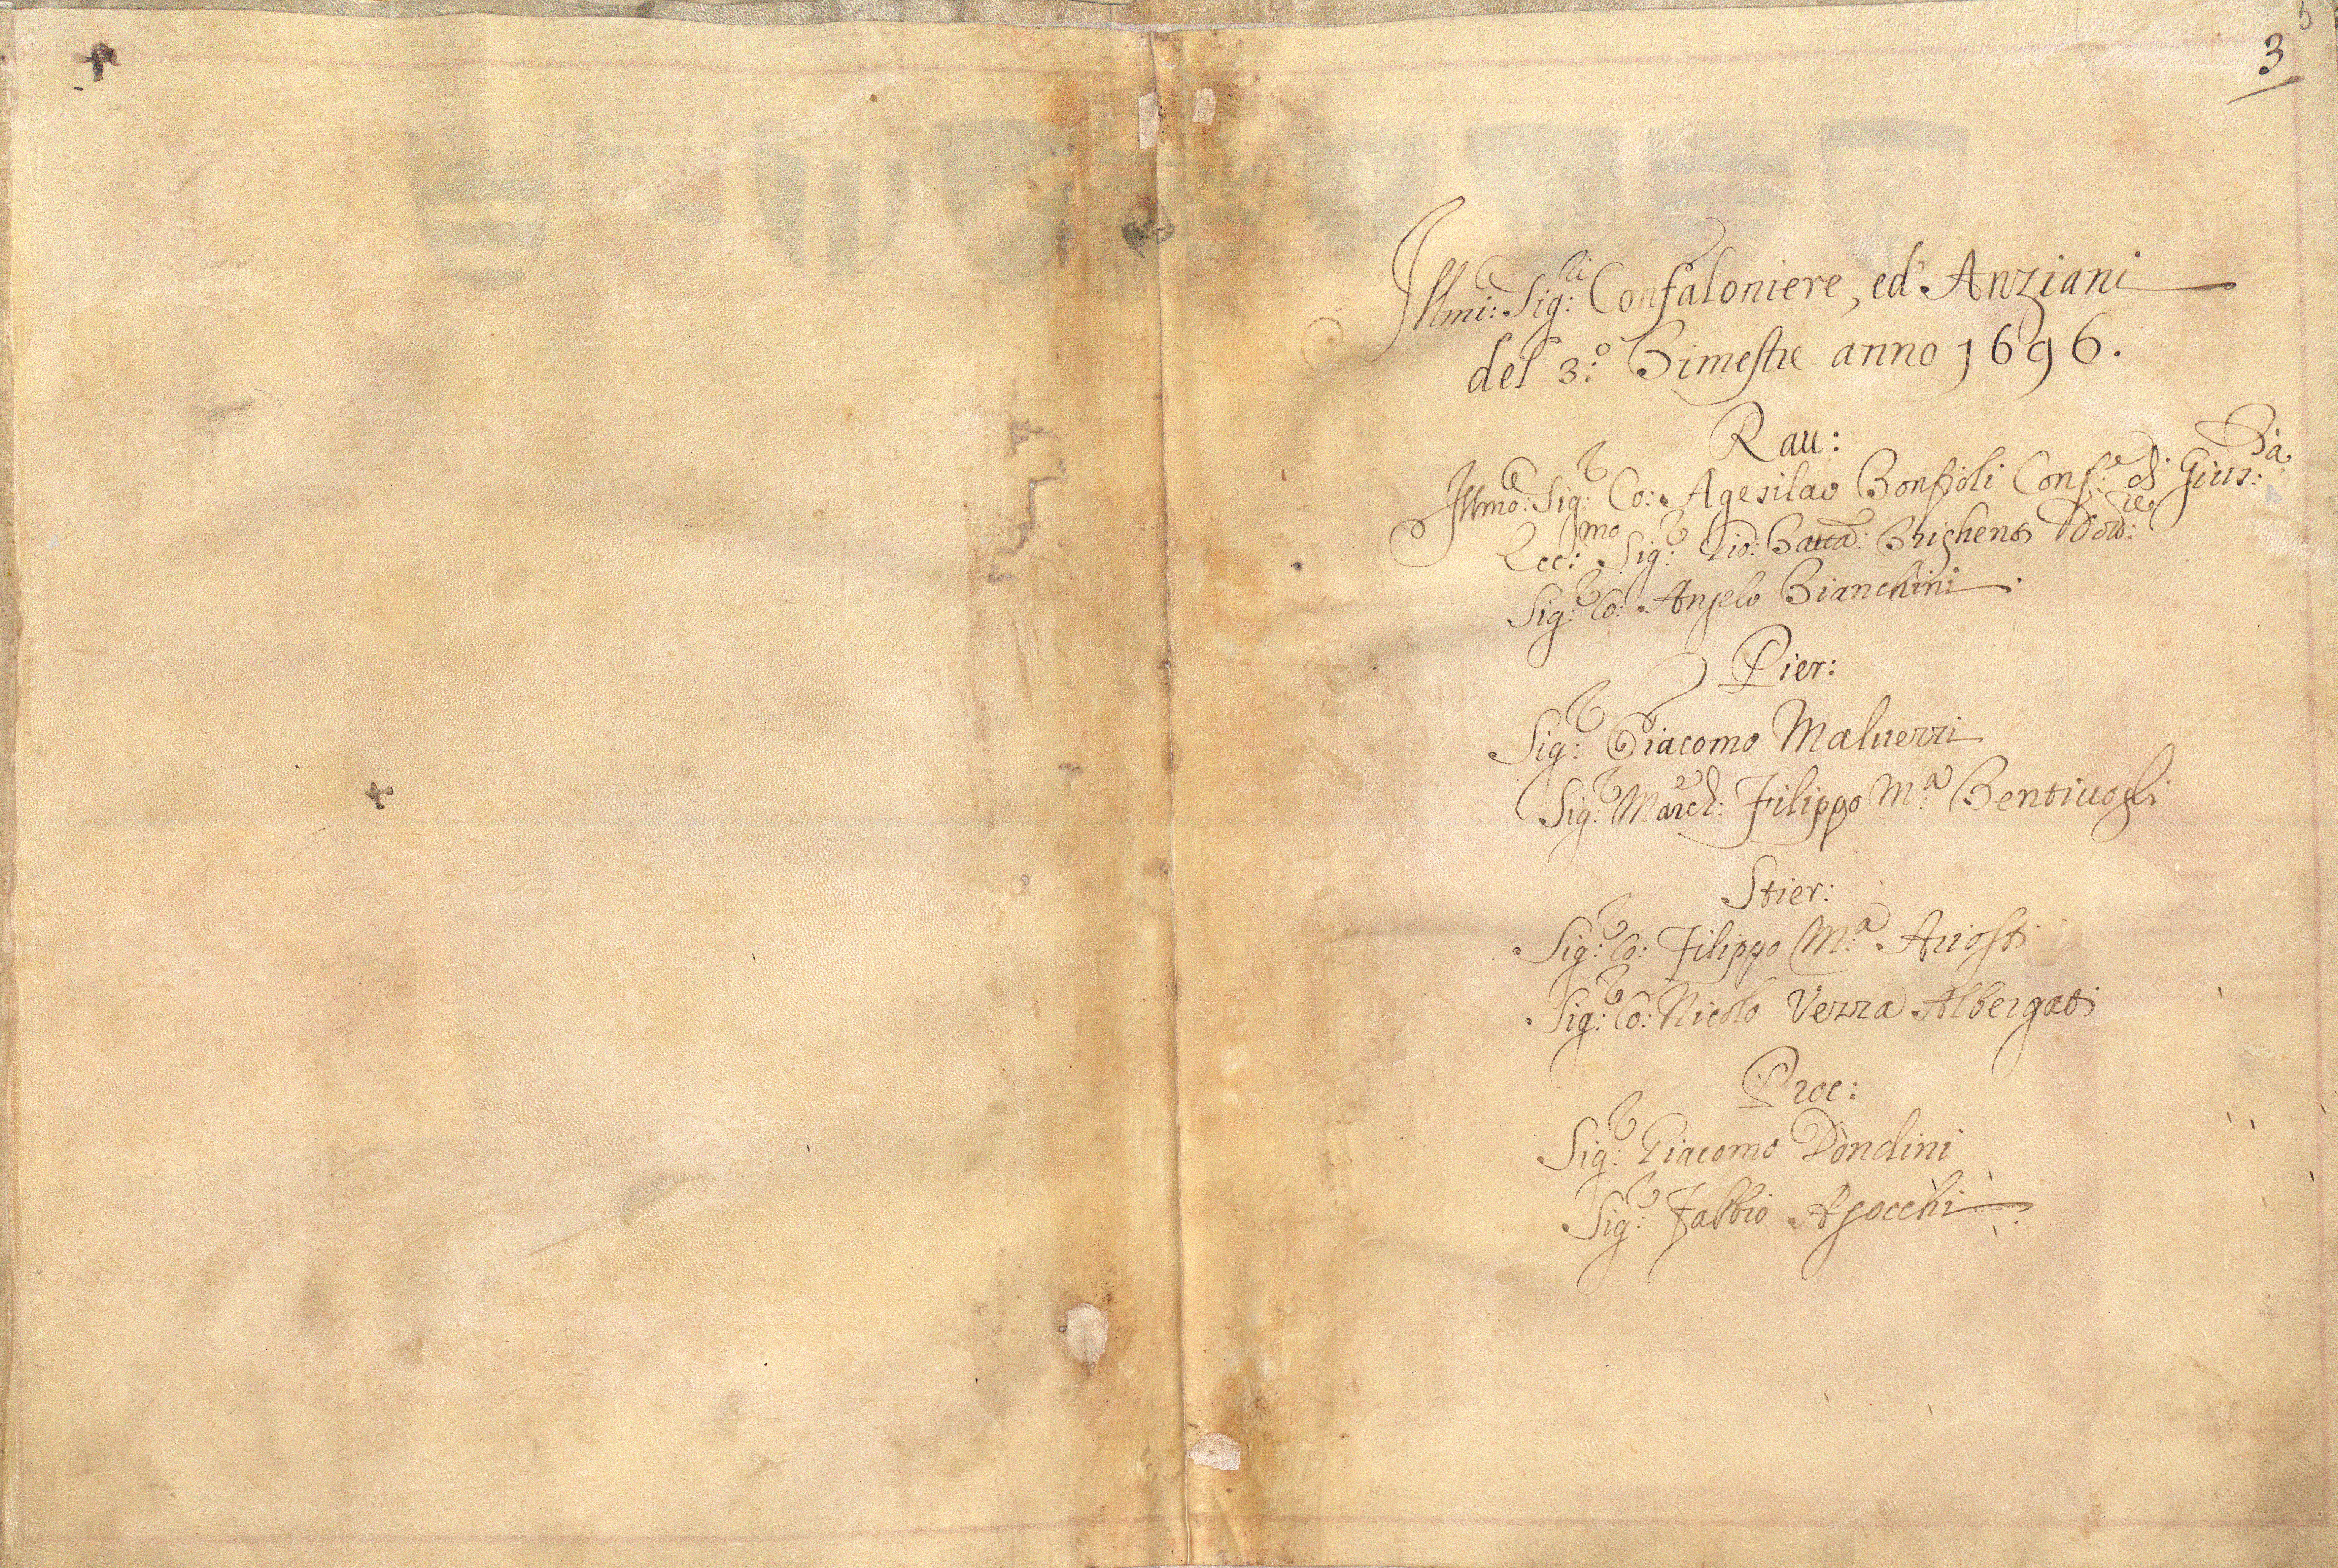 5
3
Illmi: Sig:ri Confaloniere, ed Anziani
del 3.o Bimestre anno 1696.
Rau:
Illmo: Sig:r Co: Agesilao Bonfioli Conf:e di Gius:a
Ecc:mo Sig:r Gio: Batta: Brighenti Dott:re
Sig:r Co: Angelo Bianchini
Pier:
Sig:r Giacomo Maluezzi
Sig:r March:e Filippo M:a Bentiuogli
Stier:
Sig:r Co: Filippo M:a Ariosti
Sig:r Co: Nicolo Vezza Albergati
Proc:
Sig:r Giacomo Dondini
Sig:r Fabbio Agocchi